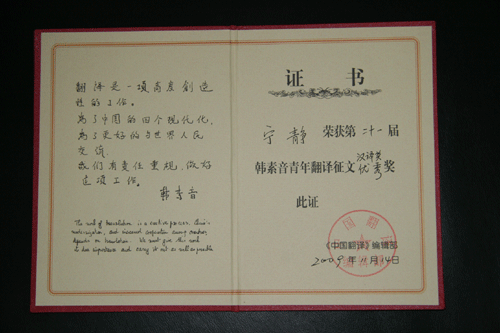 翻译是一项高度创造
性的工作。
为了中国的四个现代化，
为了更好的与世界人民
交流，
我们有责任重视，做好
这项工作。
韩素音
The work of translation is a creative process. China's
modernization, and
depends on translation. We must give this work
its due importance and carry it out as well as possible
证 书
宁静 荣获第二十一届
韩素音青年翻译征文汉译英优秀奖
此证
《中国翻译》编辑部
2009年11月14日